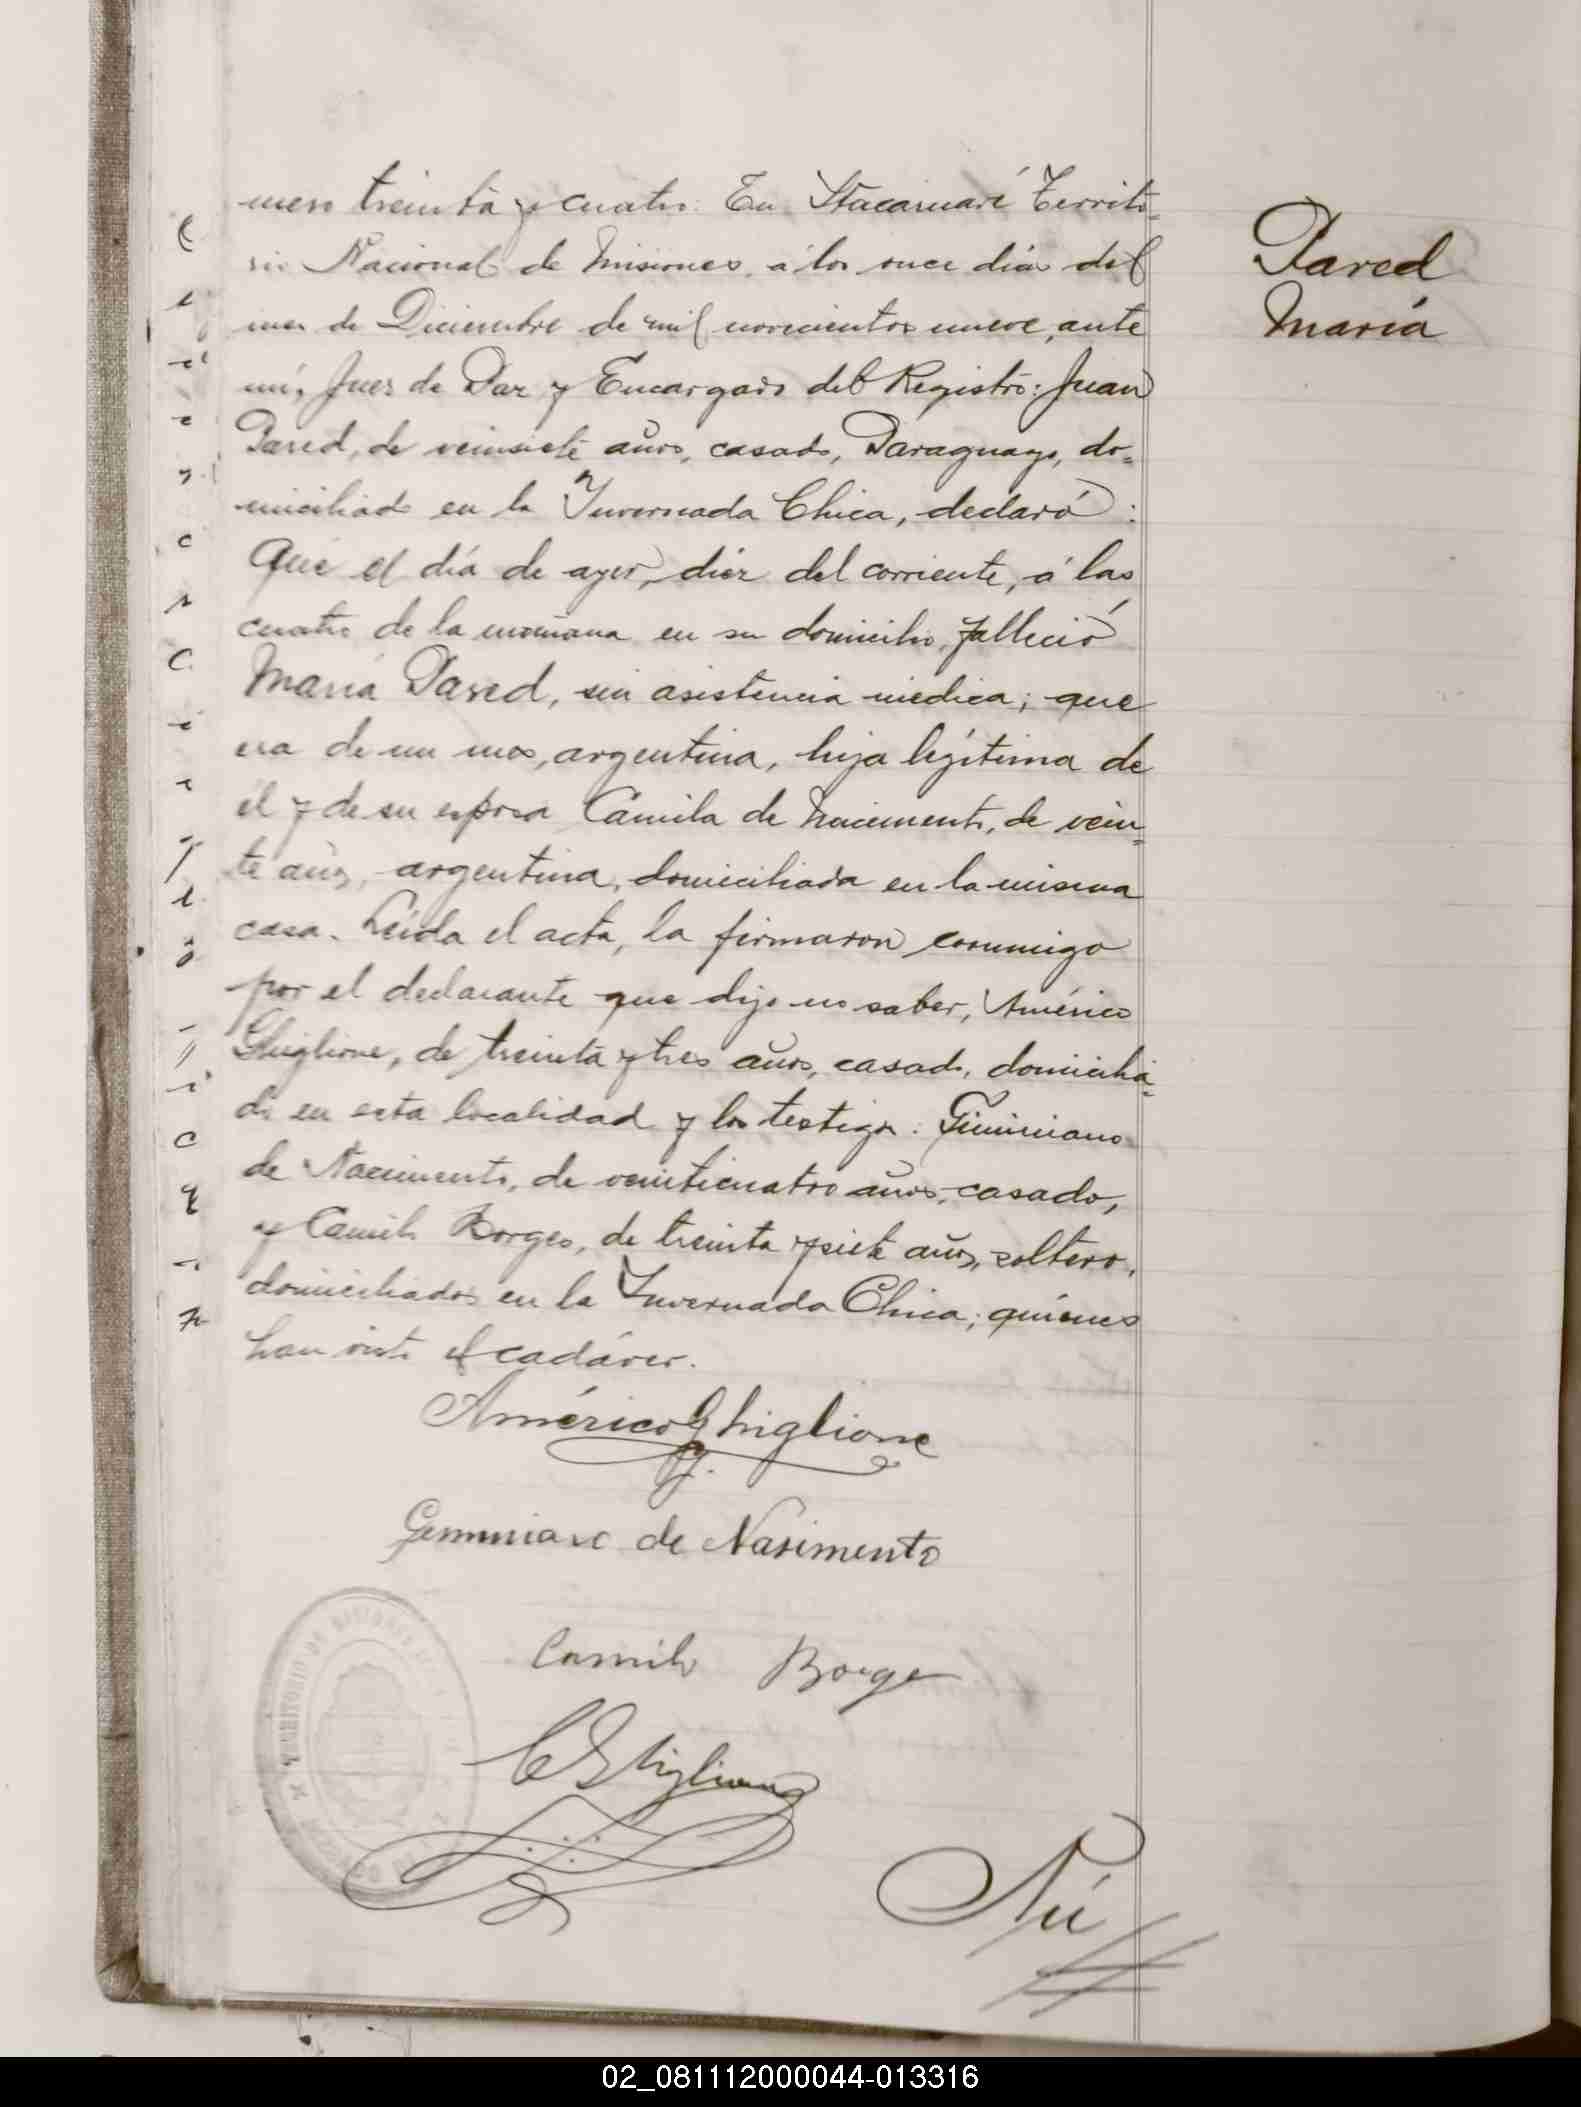 mero treinta y cuatro. En Itacaruaré Territo=
rio Nacional de Misiones, á los once días del
mes de Diciembre de mil novecientos nueve, ante
mí, Juez de Paz y Encargado del Registro: Juan
Pared, de veinsiete años, casado, Paraguayo, do=
miciliado en la Invernada Chica, declaró:
Que el día de ayer, diez del corriente, á las
cuatro de la mañana en su domicilio, falleció
María Pared, sin asistencia médica; que
era de un mes, argentina, hija legítima de
él y de su esposa Camila de Nacimento, de vein=
te años, argentina, domiciliada en la misma
casa. Leída el acta, la firmaron conmigo
por el declarante que dijo no saber, Américo
Ghiglione, de treinta y tres años, casado, domicilia=
do en esta localidad y los testigos: Giminiano
de Nacimento, de veinticuatro años, casado,
y Camilo Borges, de treinta y siete años, soltero,
domiciliados en la Invernada Chica; quiénes
han visto el cadáver.
Américo Ghiglione
Geminiano de Nasimento
Camilo Borge
C Ghiglione
Nú
Pared
María
02_081112000044-013316